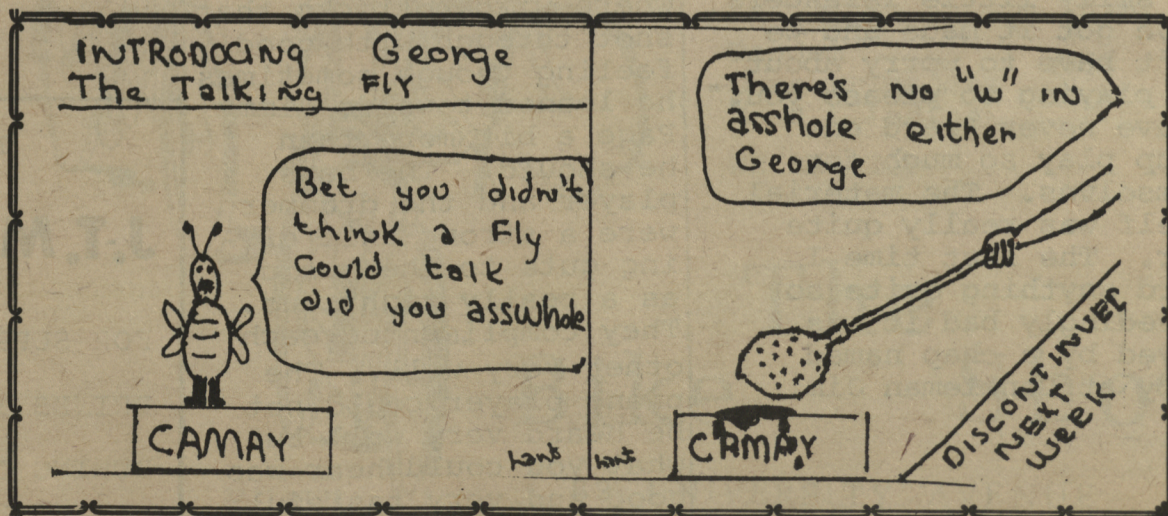 INTRODUCING George
The Talking Fly
Bet you didn't
think a Fly
could talk
did you asswhole
CAMAY
There's no "w" in
asshole either
George
CAMAY
DISCONTINUED
NEXT
WEEK